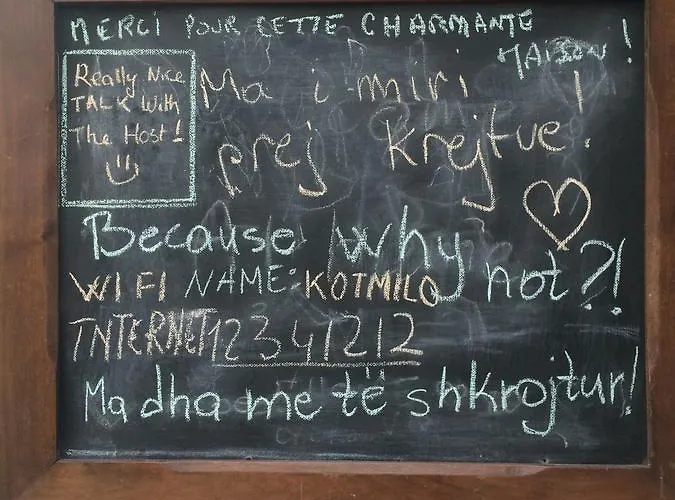 MERCI POUR CETTE CHARMANTE
MAISON !
Really Nice
TALK With
The Host!
Ma i miri
prej krejtve!
Because why not?!
WIFI NAME: KOTMILO
INTERNET12341212
Madha me të shkrojtur!